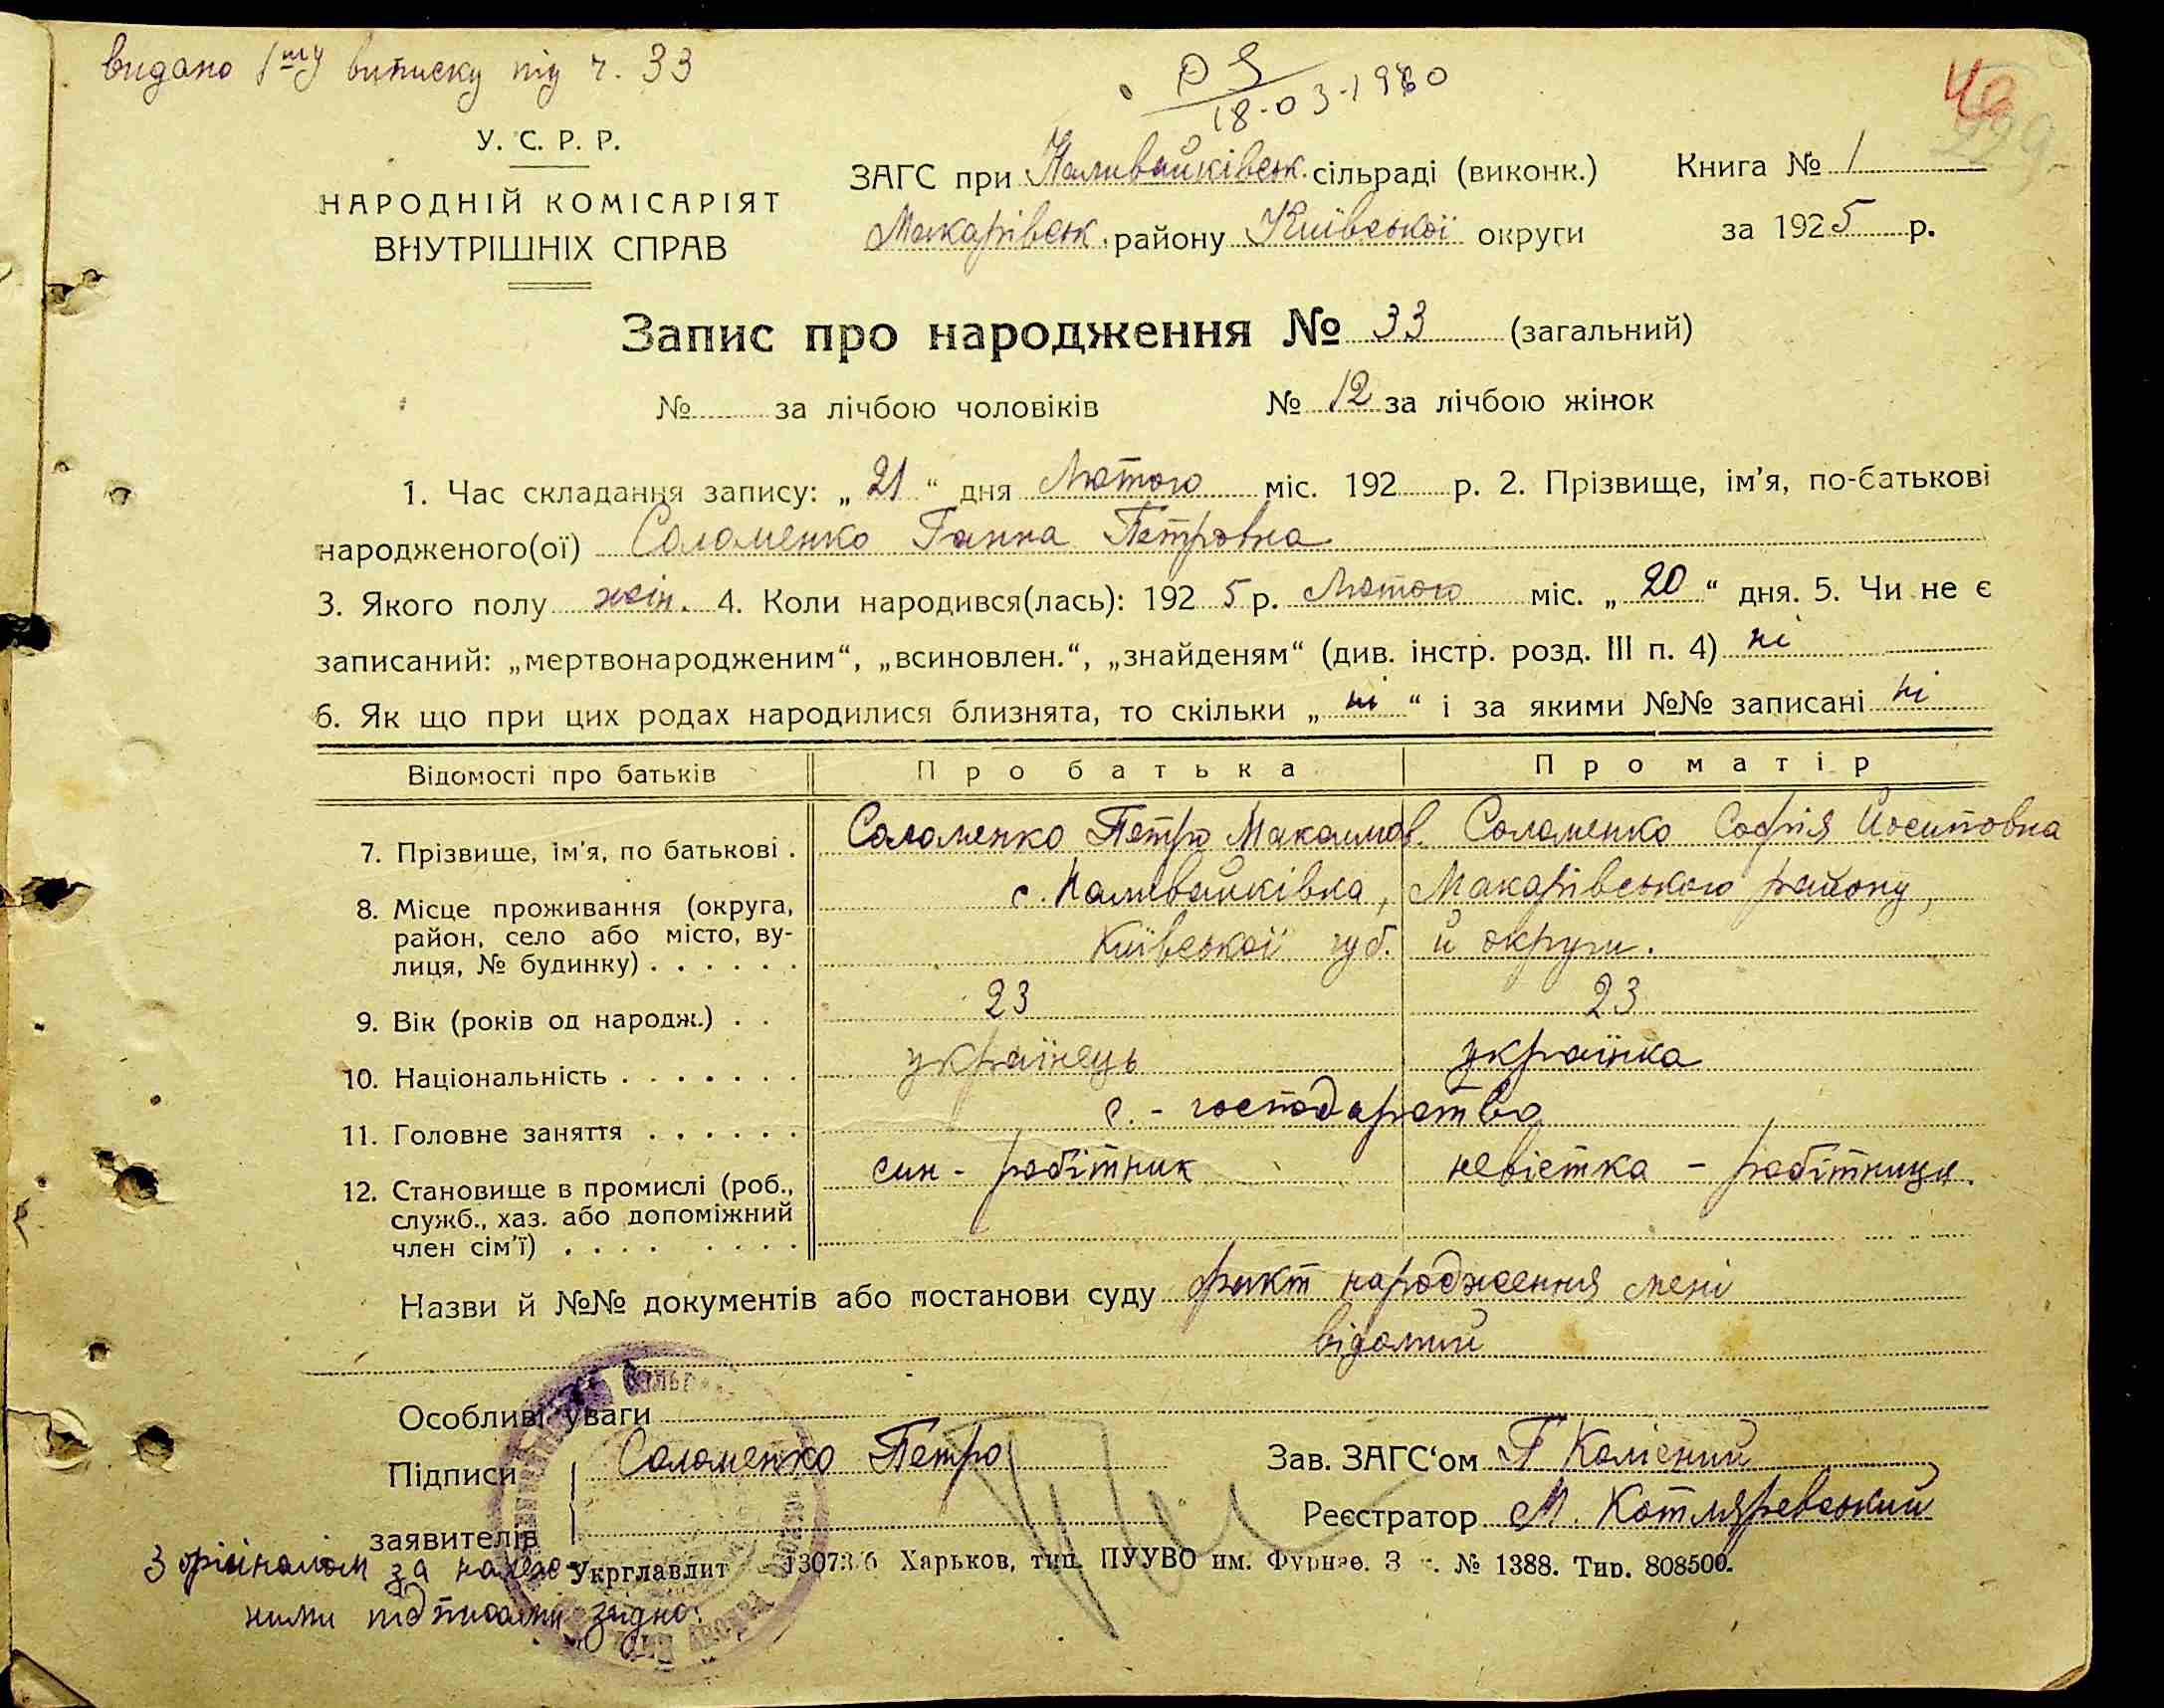 видано 1шу виписку під ч. 33
18-03-1980
49
У. С. Р. Р.
НАРОДНІЙ КОМІСАРІЯТ
ВНУТРІШНІХ СПРАВ
ЗАГС при Наливайківськ. сільраді (виконк.)
Макарівськ. району Київської округи
Книга № 1
за 1925 р.
Запис про народження № 33 (загальний)
№ за лічбою чоловіків № 12 за лічбою жінок
1. Час складання запису: „ 21 “ дня Лютого міс. 192 р. 2. Прізвище, ім’я, по-батькові
народженого(ої) Соломенко Ганна Петровна
3. Якого полу жін. 4. Коли народився(лась): 192 5 р. Лютого міс. „ 20 “ дня. 5. Чи не є
записаний: „мертвонародженим“, „всиновлен.“, „знайденям“ (див. інстр. розд. III п. 4) ні
6. Як що при цих родах народилися близнята, то скільки „ ні “ і за якими №№ записані ні
Відомості про батьків Про батька Про матір
7. Прізвище, ім’я, по батькові . Соломенко Петро Максимов. Соломенко Софія Йосиповна
8. Місце проживання (округа, с. Наливайківка, Макарівського району,
район, село або місто, ву-
лиця, № будинку) . . . . . . Київської губ. й округи.
9. Вік (років од народж.) . . 23 23
10. Національність . . . . . . . українець українка
11. Головне заняття . . . . . . с. - господарство
12. Становище в промислі (роб., син - робітник невістка - робітниця.
служб., хаз. або допоміжний
член сім’ї) . . . . . . . .
Назви й №№ документів або постанови суду факт народження мені
відомий
Особливі уваги
Підписи Соломенко Петро
заявителів
Зав. ЗАГС‘ом Г Колісний
Реєстратор М. Котляревський
Укрглавлит Харьков, тип. ПУУВО им. Фрунзе. З № 1388. Тир. 808500.
З оріиналом за належ-
ними підписами згідно: